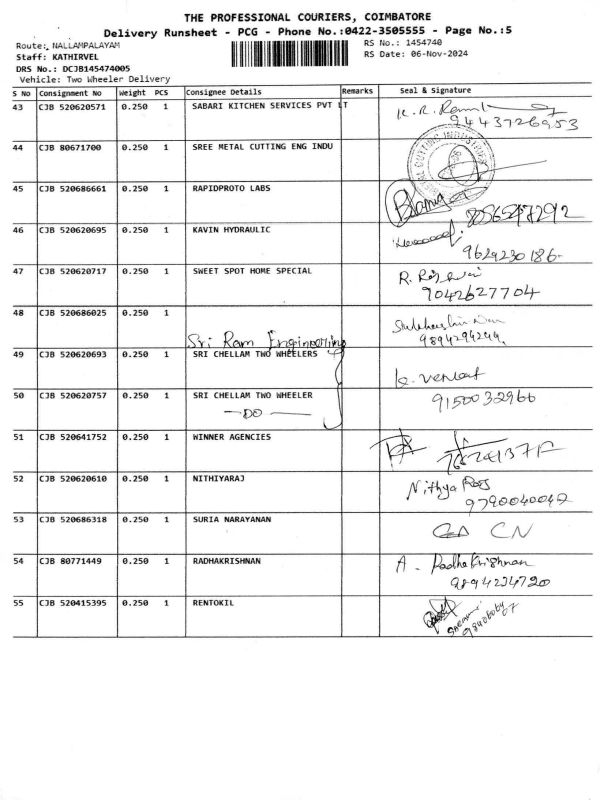 THE PROFESSIONAL COURIERS, COIMBATORE
Delivery Runsheet - PCG - Phone No.:0422-3505555 - Page No.:5
Route: NALLAMPALAYAM
RS No.: 1454740
Staff: KATHIRVEL
RS Date: 06-Nov-2024
DRS No.: DCJB145474005
Vehicle: Two Wheeler Delivery
S No Consignment No Weight PCS Consignee Details Remarks Seal & Signature
43 CJB 520620571 0.250 1 SABARI KITCHEN SERVICES PVT LT
9443726953
44 CJB 80671700 0.250 1 SREE METAL CUTTING ENG INDU
45 CJB 520686661 0.250 1 RAPIDPROTO LABS
8056547292
46 CJB 520620695 0.250 1 KAVIN HYDRAULIC
9629230186
47 CJB 520620717 0.250 1 SWEET SPOT HOME SPECIAL
9042627704
48 CJB 520686025 0.250 1
Sri Ram Engineering
9894294244
49 CJB 520620693 0.250 1 SRI CHELLAM TWO WHEELERS
K. Venkat
50 CJB 520620757 0.250 1 SRI CHELLAM TWO WHEELER
9150032966
—DO—
51 CJB 520641752 0.250 1 WINNER AGENCIES
52 CJB 520620610 0.250 1 NITHIYARAJ
Nithya Raj
9790040042
53 CJB 520686318 0.250 1 SURIA NARAYANAN
CN
54 CJB 80771449 0.250 1 RADHAKRISHNAN
A. Radhakrishnan
9894234720
55 CJB 520415395 0.250 1 RENTOKIL